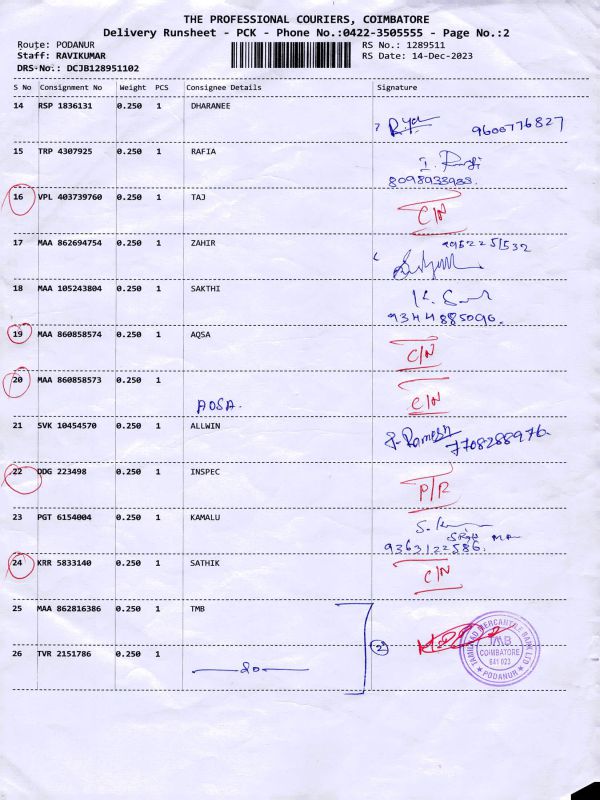 THE PROFESSIONAL COURIERS, COIMBATORE
Delivery Runsheet - PCK - Phone No.:0422-3505555 - Page No.:2
Route: PODANUR RS No.: 1289511
Staff: RAVIKUMAR RS Date: 14-Dec-2023
DRS-No.: DCJB128951102
S No Consignment No Weight PCS Consignee Details Signature
14 RSP 1836131 0.250 1 DHARANEE
9600776827
15 TRP 4307925 0.250 1 RAFIA
8098933933.
16 VPL 403739760 0.250 1 TAJ
C/N
17 MAA 862694754 0.250 1 ZAHIR
18 MAA 105243804 0.250 1 SAKTHI
9344885096.
19 MAA 860858574 0.250 1 AQSA
C/N
20 MAA 860858573 0.250 1
AQSA. C/N
21 SVK 10454570 0.250 1 ALLWIN
Ramesh
7708288976.
22 DDG 223498 0.250 1 INSPEC
P/R
23 PGT 6154004 0.250 1 KAMALU
9363122586.
24 KRR 5833140 0.250 1 SATHIK
C/N
25 MAA 862816386 0.250 1 TMB
2
26 TVR 2151786 0.250 1
TAMILNAD MERCANTILE BANK LTD
TMB
COIMBATORE
641 023
PODANUR